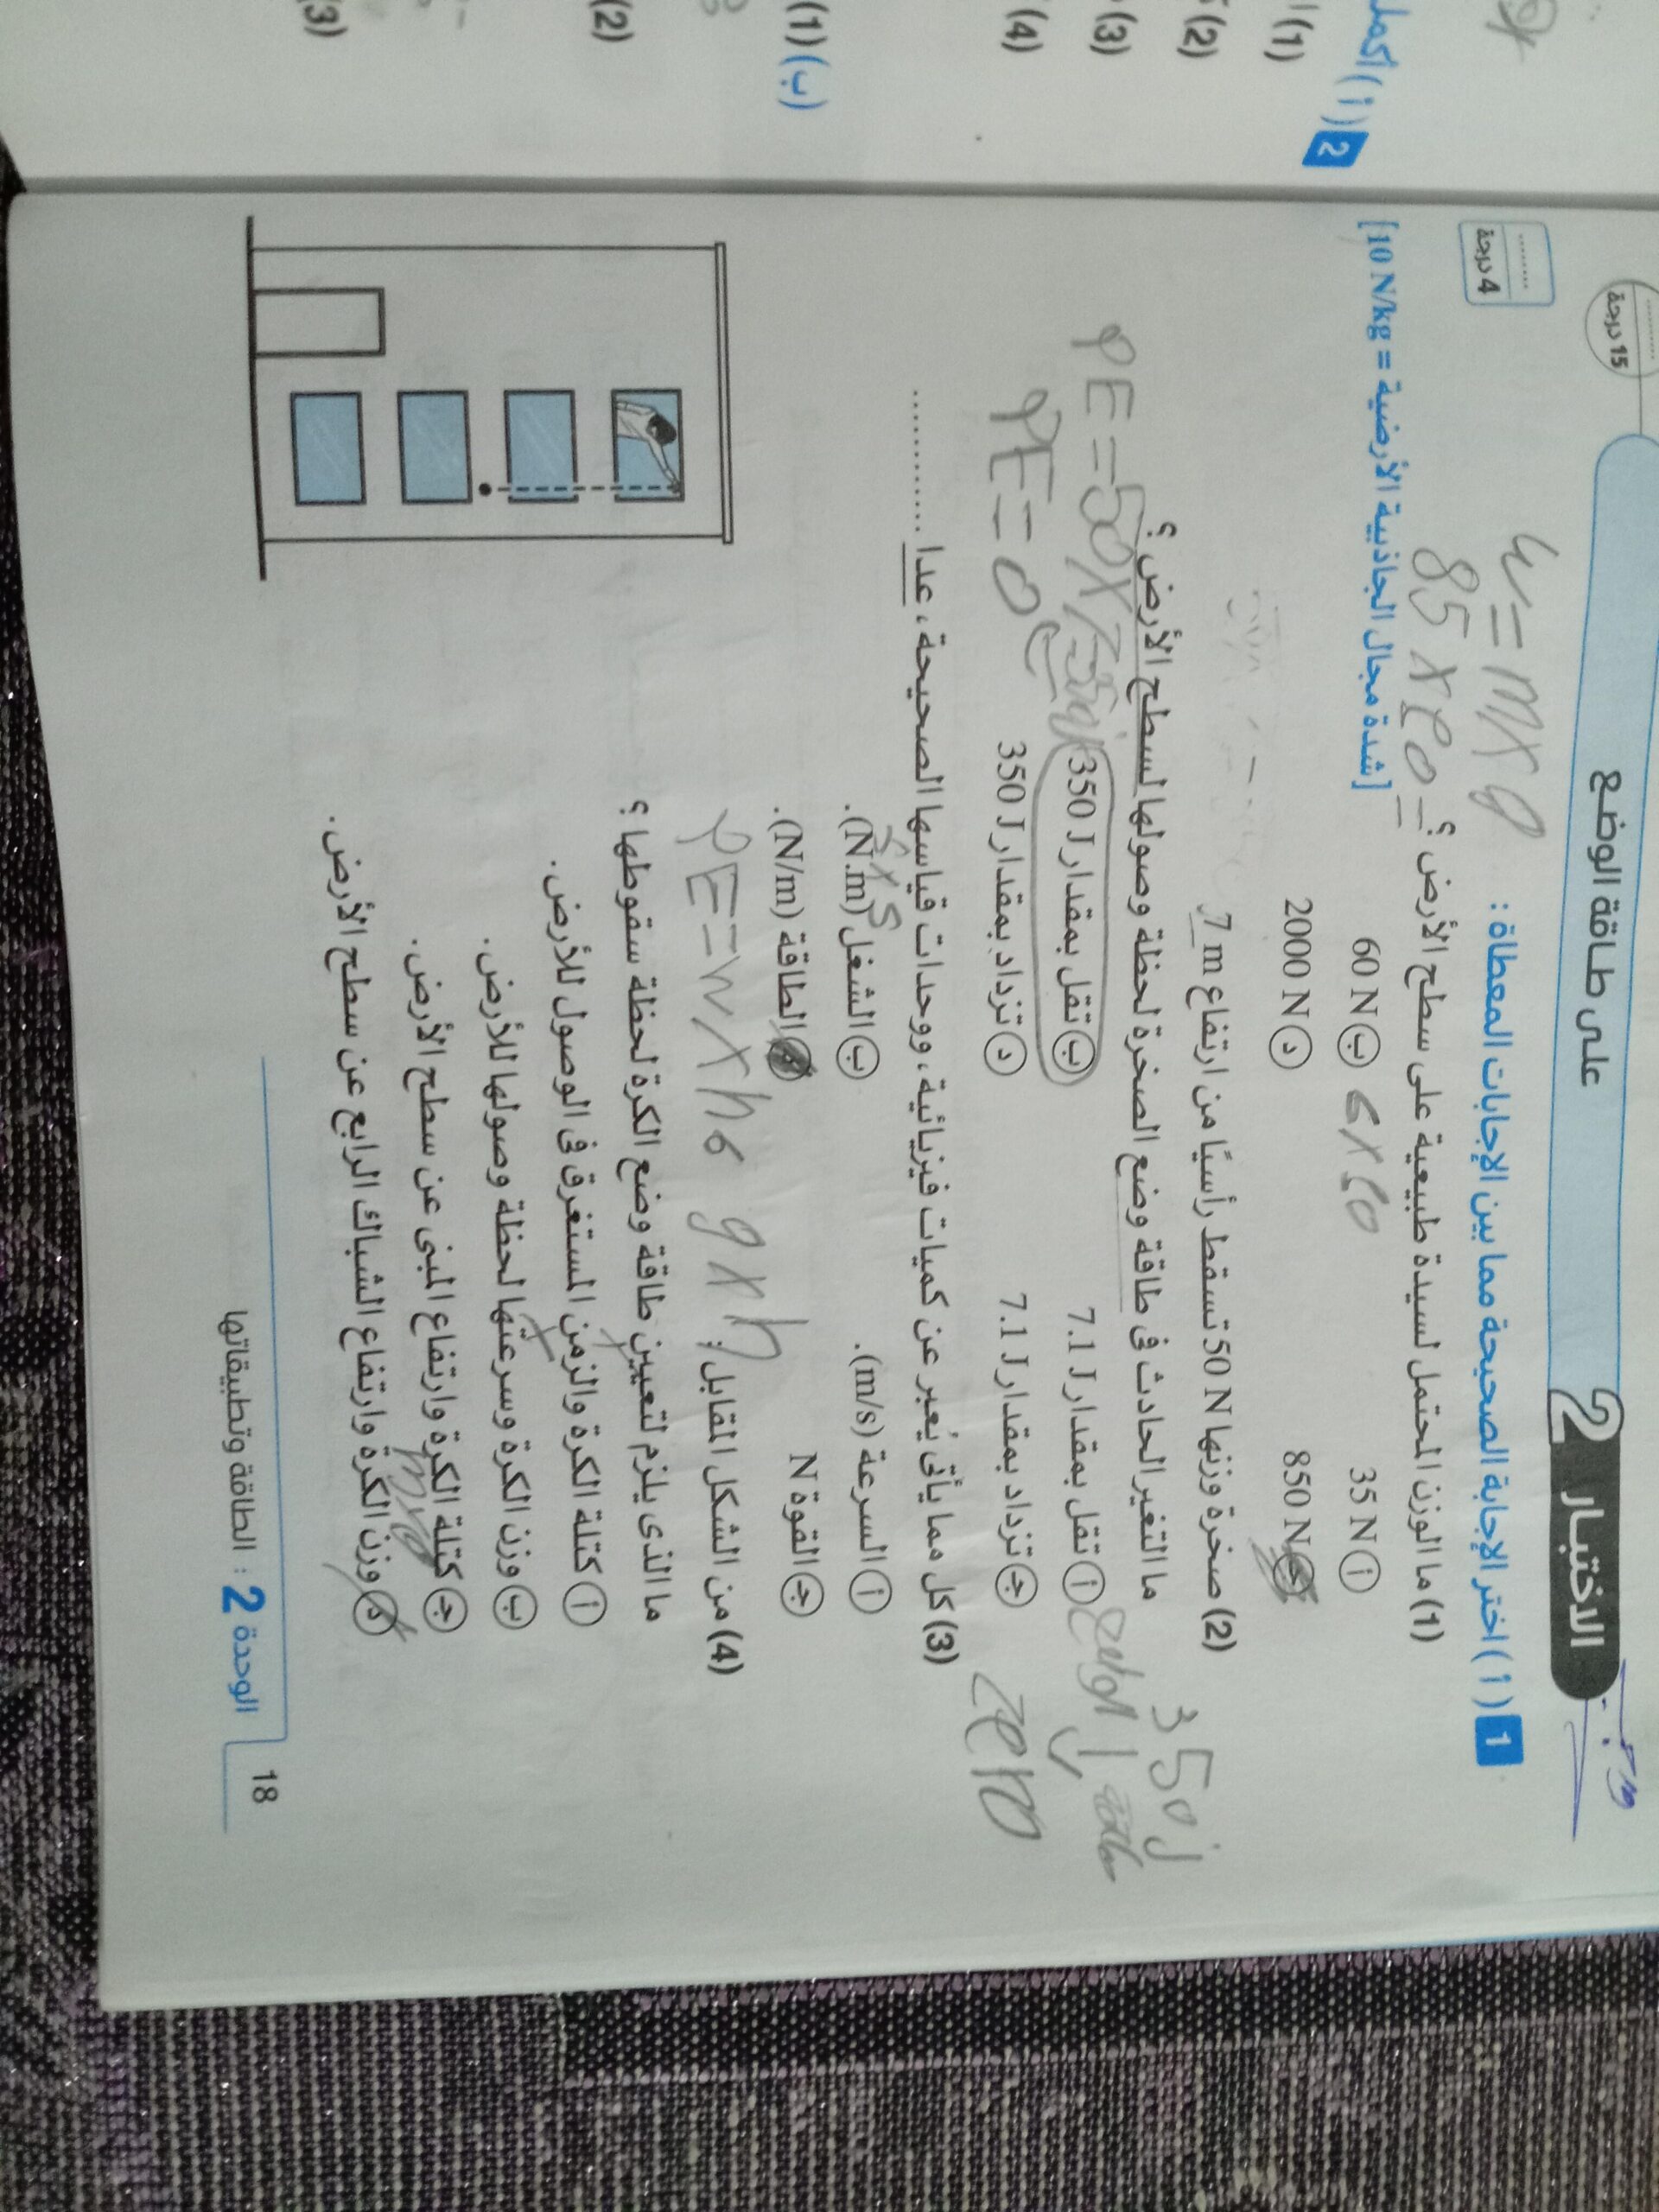 الاختبار 2 على طاقة الوضع
15 درجة
1 (أ) اختر الإجابة الصحيحة مما بين الإجابات المعطاة :
4 درجة
w = m x g
(1) ما الوزن المحتمل لسيدة طبيعية على سطح الأرض ؟
85 x 10 =
[شدة مجال الجاذبية الأرضية = 10 N/kg]
أ 35 N
ب 60 N
6 x 10
850 N
د 2000 N
(2) صخرة وزنها 50 N تسقط رأسيًا من ارتفاع 7 m
ما التغير الحادث فى طاقة وضع الصخرة لحظة وصولها لسطح الأرض ؟
350 J
أ تقل بمقدار 7.1 J
ب تقل بمقدار 350 J
PE = 50 x 7 =
ج تزداد بمقدار 7.1 J
د تزداد بمقدار 350 J
PE = 0
zero
(3) كل مما يأتى يُعبر عن كميات فيزيائية، ووحدات قياسها الصحيحة، عدا ............
أ السرعة (m/s).
ب الشغل (N.m).
ج القوة N
الطاقة (N/m).
(4) من الشكل المقابل :
PE = w x h
g x h
ما الذى يلزم لتعيين طاقة وضع الكرة لحظة سقوطها ؟
أ كتلة الكرة والزمن المستغرق فى الوصول للأرض.
ب وزن الكرة وسرعتها لحظة وصولها للأرض.
ج كتلة الكرة وارتفاع المبنى عن سطح الأرض.
د وزن الكرة وارتفاع الشباك الرابع عن سطح الأرض.
18
الوحدة 2 : الطاقة وتطبيقاتها
2 (أ) أكمل
(1)
(2)
(3)
(4)
(ب) (1)
(2)
(3)